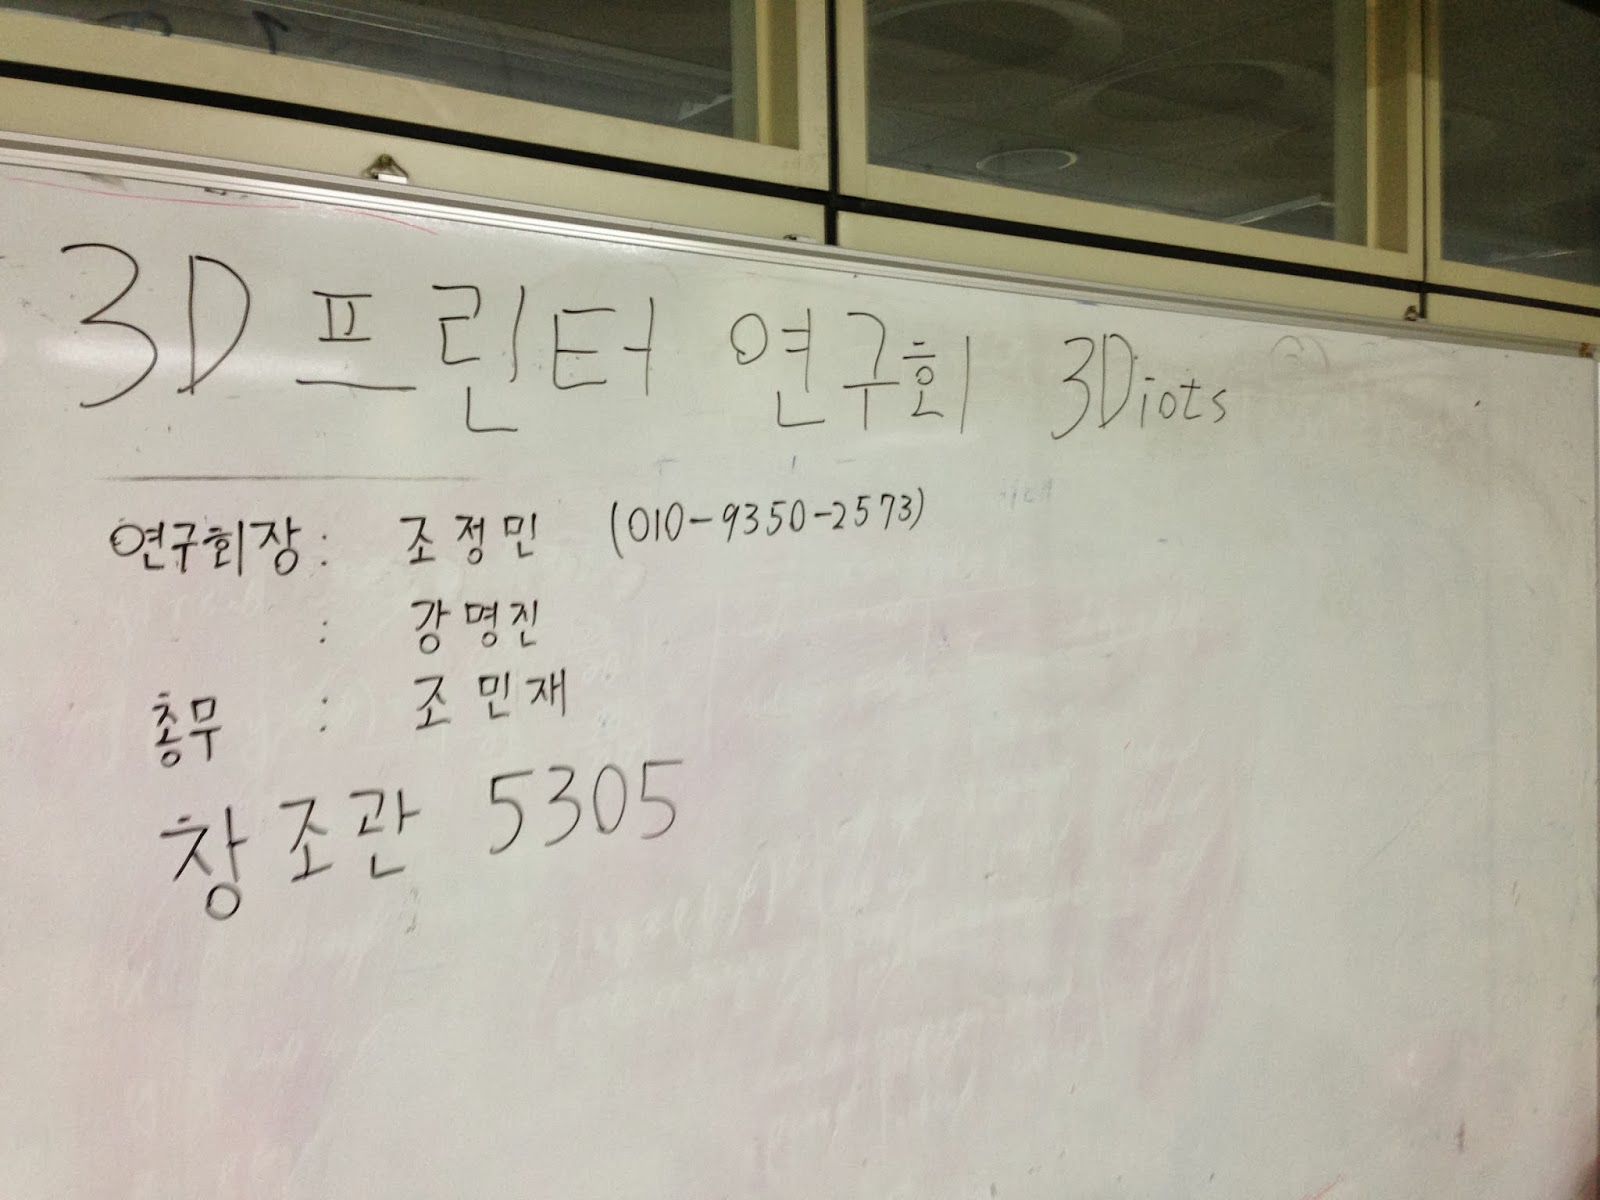 3D 프린터 연구회 3Diots
연구회장 : 조정민 (010-9350-2573)
: 강명진
총무 : 조민재
창조관 5305